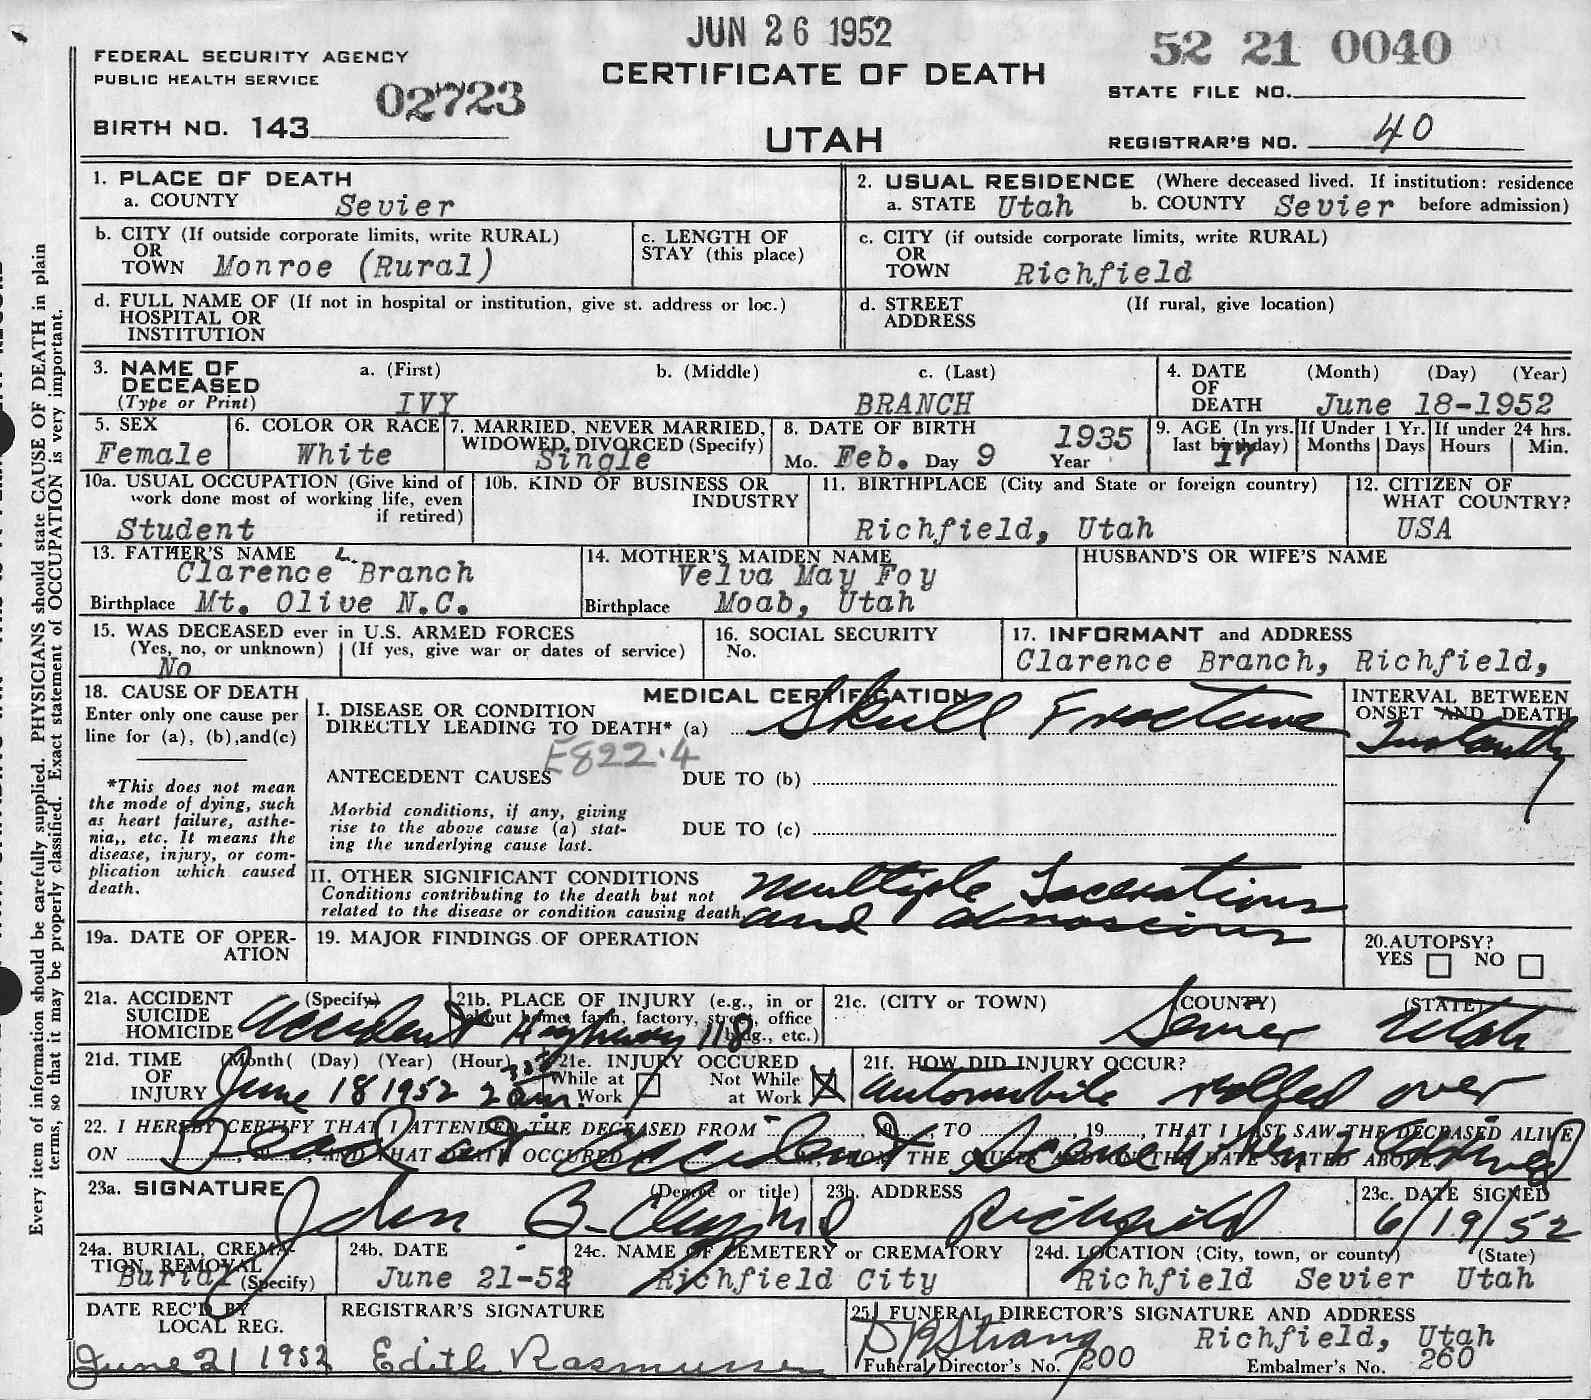 JUN 26 1952
52 21 0040
FEDERAL SECURITY AGENCY
PUBLIC HEALTH SERVICE
CERTIFICATE OF DEATH
STATE FILE NO.
02723
BIRTH NO. 143
UTAH
REGISTRAR'S NO. 40
Every item of information should be carefully supplied. PHYSICIANS should state CAUSE OF DEATH in plain
terms, so that it may be properly classified. Exact statement of OCCUPATION is very important.
1. PLACE OF DEATH
a. COUNTY Sevier
2. USUAL RESIDENCE (Where deceased lived. If institution: residence
a. STATE Utah b. COUNTY Sevier before admission)
b. CITY (If outside corporate limits, write RURAL)
OR
TOWN Monroe (Rural)
c. LENGTH OF
STAY (this place)
c. CITY (if outside corporate limits, write RURAL)
OR
TOWN Richfield
d. FULL NAME OF (If not in hospital or institution, give st. address or loc.)
HOSPITAL OR
INSTITUTION
d. STREET (If rural, give location)
ADDRESS
3. NAME OF
DECEASED
(Type or Print)
a. (First) b. (Middle) c. (Last)
IVY BRANCH
4. DATE (Month) (Day) (Year)
OF
DEATH June 18-1952
5. SEX
Female
6. COLOR OR RACE
White
7. MARRIED, NEVER MARRIED,
WIDOWED, DIVORCED (Specify)
Single
8. DATE OF BIRTH 1935
Mo. Feb. Day 9 Year
9. AGE (In yrs.
last birthday)
17
If Under 1 Yr.
Months Days
If under 24 hrs.
Hours Min.
10a. USUAL OCCUPATION (Give kind of
work done most of working life, even
if retired)
Student
10b. KIND OF BUSINESS OR
INDUSTRY
11. BIRTHPLACE (City and State or foreign country)
Richfield, Utah
12. CITIZEN OF
WHAT COUNTRY?
USA
13. FATHER'S NAME L.
Clarence Branch
Birthplace Mt. Olive N.C.
14. MOTHER'S MAIDEN NAME
Velva May Foy
Birthplace Moab, Utah
HUSBAND'S OR WIFE'S NAME
15. WAS DECEASED ever in U.S. ARMED FORCES
(Yes, no, or unknown) (If yes, give war or dates of service)
No
16. SOCIAL SECURITY
No.
17. INFORMANT and ADDRESS
Clarence Branch, Richfield,
18. CAUSE OF DEATH
Enter only one cause per
line for (a), (b),and(c)
*This does not mean
the mode of dying, such
as heart failure, asthe-
nia,, etc. It means the
disease, injury, or com-
plication which caused
death.
MEDICAL CERTIFICATION
I. DISEASE OR CONDITION
DIRECTLY LEADING TO DEATH* (a) Skull Fracture
E822.4
ANTECEDENT CAUSES DUE TO (b)
Morbid conditions, if any, giving
rise to the above cause (a) stat-
ing the underlying cause last.
DUE TO (c)
INTERVAL BETWEEN
ONSET AND DEATH
Instantly
II. OTHER SIGNIFICANT CONDITIONS
Conditions contributing to the death but not
related to the disease or condition causing death.
Multiple Lacerations
and abrasions
19a. DATE OF OPER-
ATION
19. MAJOR FINDINGS OF OPERATION
20.AUTOPSY?
YES NO
21a. ACCIDENT (Specify)
SUICIDE
HOMICIDE Accident
21b. PLACE OF INJURY (e.g., in or
about home, farm, factory, street, office
bldg., etc.)
Highway 118
21c. (CITY or TOWN) (COUNTY) (STATE)
Sevier Utah
21d. TIME (Month( (Day) (Year) (Hour)
OF
INJURY June 18 1952 2 30 am.
21e. INJURY OCCURED
While at Not While
Work at Work
21f. HOW DID INJURY OCCUR?
Automobile rolled over
22. I HEREBY CERTIFY THAT I ATTENDED THE DECEASED FROM , 19 , TO , 19 , THAT I LAST SAW THE DECEASED ALIVE
ON , 19 , AND THAT DEATH OCCURED AT M., FROM THE CAUSES AND ON THE DATE STATED ABOVE.
Dead at accident scene when I arrived
23a. SIGNATURE (Degree or title)
John B. Cluff MD
23b. ADDRESS
Richfield
23c. DATE SIGNED
6/19/52
24a. BURIAL, CREMA-
TION, REMOVAL
Burial (Specify)
24b. DATE
June 21-52
24c. NAME OF CEMETERY or CREMATORY
Richfield City
24d. LOCATION (City, town, or county) (State)
Richfield Sevier Utah
DATE REC'D BY
LOCAL REG.
June 21 1952
REGISTRAR'S SIGNATURE
Edith Rasmussen
25. FUNERAL DIRECTOR'S SIGNATURE AND ADDRESS
Richfield, Utah
Funeral Director's No. 200 Embalmer's No. 260